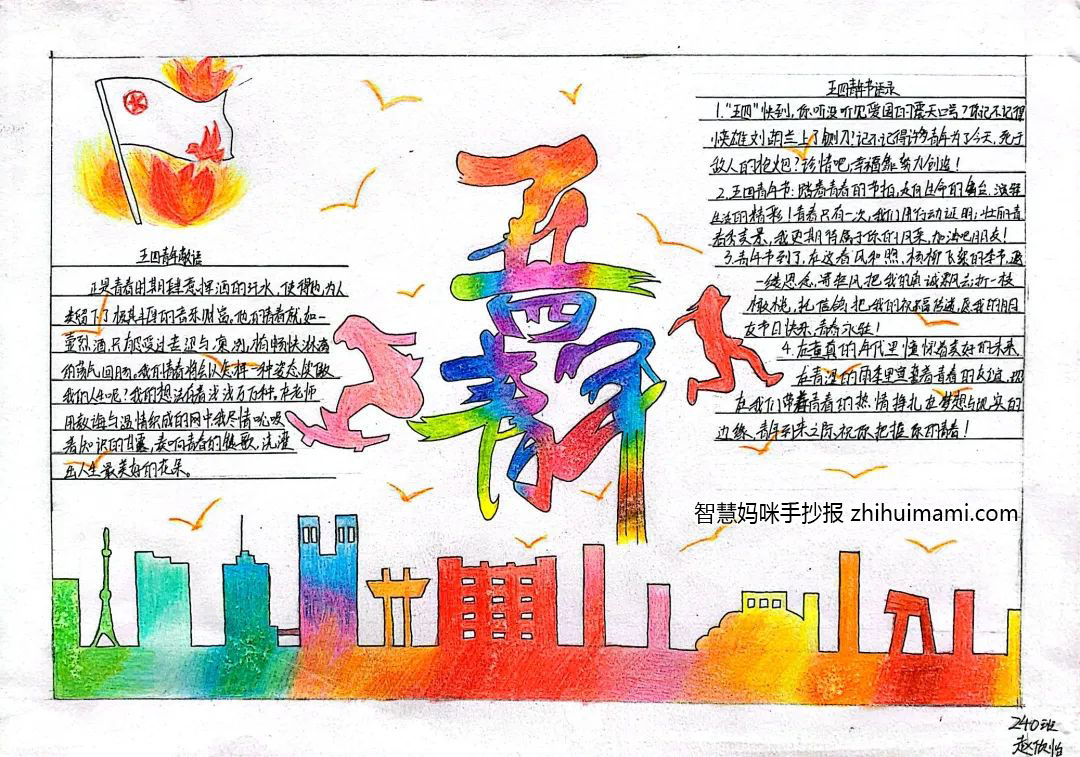 五四青年
五四青年献语
正是青春时期肆意挥洒的汗水，使得他为人
类留下了极其丰厚的音乐财富。他的青春就如一
壶烈酒，只有感受过
的荡气回肠。我们青春将会以怎样一种姿态
我们人生呢？我的想法有着千万种。在老师
用教诲与温情织成的网中我尽情吮吸
着知识的甘露，奏响青春的凯歌，浇灌
出人生最美好的花朵。
五四青年节语录
1."五四"快到，你听没听见爱国的震天口号？你记不记得
英雄刘胡兰上了铡刀？记不记得许多青年为了今天，死于
敌人的枪炮？珍惜吧，幸福靠努力创造！
2.五四青年节：踏着青春的节拍，走向生命的舞台，演绎
生活的精彩！青春只有一次，我们用行动证明；壮丽的青
春秀美景，我更期待属于你的风采，加油吧朋友！
3.青年节到了，在这春风和煦、杨柳飞絮的季节，遥
一缕思念，寄轻风把我的真诚飘去；折一枝
橄榄，托信鸽把我的祝福传递，愿我的朋
友节日快乐，青春永驻！
4.在童真的年代里憧憬着美好的未来，
在青涩的雨季里
在我们带着青春的热情挣扎在梦想与现实的
边缘，青年节到来之际，祝你把握你的青春！
智慧妈咪手抄报 zhihuimami.com
240班
赵欣怡